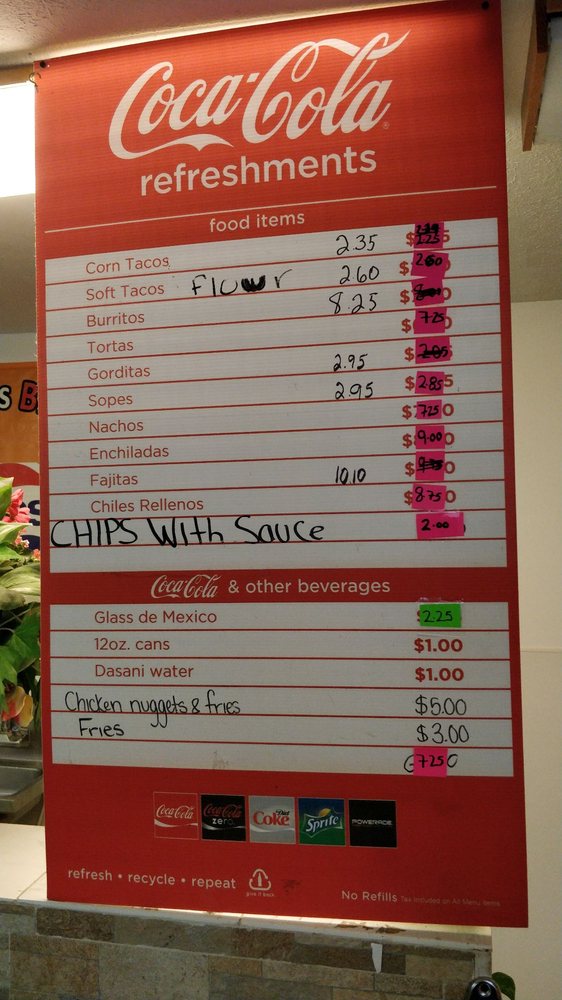 Coca-Cola
refreshments
food items
Corn Tacos 2.35 $
Soft Tacos Fluwr 2.60 $2.60
Burritos 8.25 $
Tortas $7.25
Gorditas 2.95 $
Sopes 2.95 $2.85
Nachos $7.50
Enchiladas $9.00
Fajitas 10.10 $
Chiles Rellenos $8.75
CHIPS With Sauce 2.00
Coca-Cola & other beverages
Glass de Mexico 2.25
12oz. cans $1.00
Dasani water $1.00
Chicken nuggets & fries $5.00
Fries $3.00
7.25
Coca-Cola Coca-Cola zero Diet Coke Sprite POWERADE
refresh • recycle • repeat
give it back
No Refills Tax Included on All Menu Items